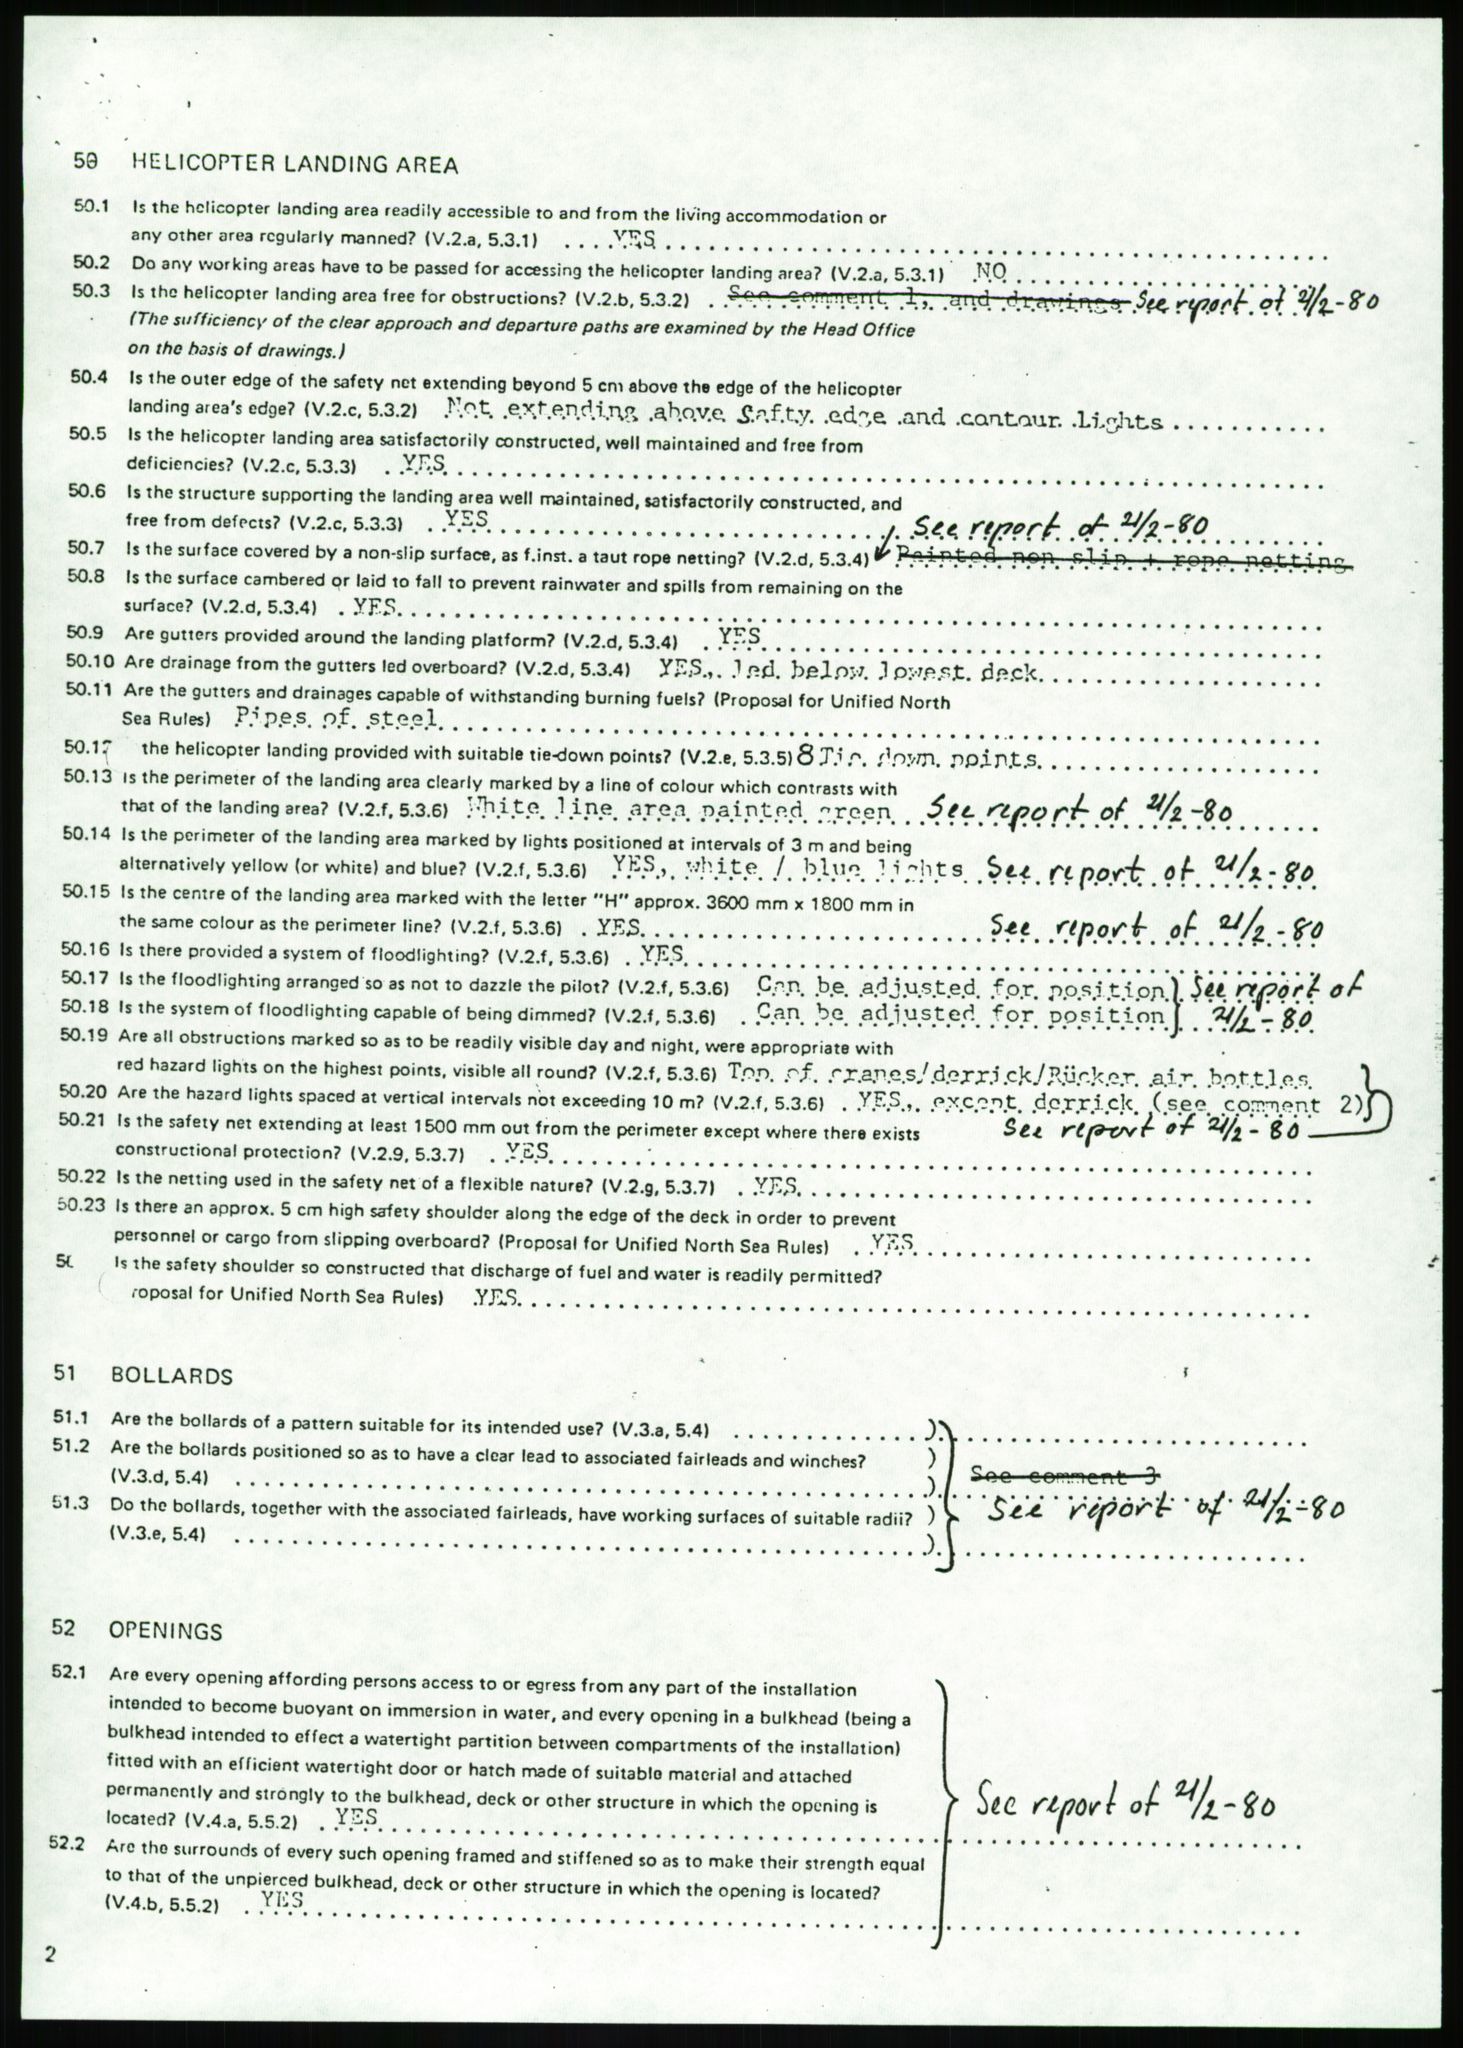 50 HELICOPTER LANDING AREA
50.1 Is the helicopter landing area readily accessible to and from the living accommodation or
any other area regularly manned? (V.2.a, 5.3.1) YES
50.2 Do any working areas have to be passed for accessing the helicopter landing area? (V.2.a, 5.3.1) NO
50.3 Is the helicopter landing area free for obstructions? (V.2.b, 5.3.2) See comment 1, and drawings See report of 21/2-80
(The sufficiency of the clear approach and departure paths are examined by the Head Office
on the basis of drawings.)
50.4 Is the outer edge of the safety net extending beyond 5 cm above the edge of the helicopter
landing area's edge? (V.2.c, 5.3.2) Not extending above Safty edge and contour lights
50.5 Is the helicopter landing area satisfactorily constructed, well maintained and free from
deficiencies? (V.2.c, 5.3.3) YES
50.6 Is the structure supporting the landing area well maintained, satisfactorily constructed, and
free from defects? (V.2.c, 5.3.3) YES See report of 21/2-80
50.7 Is the surface covered by a non-slip surface, as f.inst. a taut rope netting? (V.2.d, 5.3.4) Painted non slip + rope netting
50.8 Is the surface cambered or laid to fall to prevent rainwater and spills from remaining on the
surface? (V.2.d, 5.3.4) YES
50.9 Are gutters provided around the landing platform? (V.2.d, 5.3.4) YES
50.10 Are drainage from the gutters led overboard? (V.2.d, 5.3.4) YES, led below lowest deck
50.11 Are the gutters and drainages capable of withstanding burning fuels? (Proposal for Unified North
Sea Rules) Pipes of steel
50.12 the helicopter landing provided with suitable tie-down points? (V.2.e, 5.3.5) 8 Tie down points
50.13 Is the perimeter of the landing area clearly marked by a line of colour which contrasts with
that of the landing area? (V.2.f, 5.3.6) White line area painted green See report of 21/2-80
50.14 Is the perimeter of the landing area marked by lights positioned at intervals of 3 m and being
alternatively yellow (or white) and blue? (V.2.f, 5.3.6) YES, white / blue lights See report of 21/2-80
50.15 Is the centre of the landing area marked with the letter "H" approx. 3600 mm x 1800 mm in
the same colour as the perimeter line? (V.2.f, 5.3.6) YES See report of 21/2-80
50.16 Is there provided a system of floodlighting? (V.2.f, 5.3.6) YES
50.17 Is the floodlighting arranged so as not to dazzle the pilot? (V.2.f, 5.3.6) Can be adjusted for position) See report of
50.18 Is the system of floodlighting capable of being dimmed? (V.2.f, 5.3.6) Can be adjusted for position) 21/2-80
50.19 Are all obstructions marked so as to be readily visible day and night, were appropriate with
red hazard lights on the highest points, visible all round? (V.2.f, 5.3.6) Top of cranes/derrick/Rücker air bottles
50.20 Are the hazard lights spaced at vertical intervals not exceeding 10 m? (V.2.f, 5.3.6) YES, except derrick (see comment 2)
50.21 Is the safety net extending at least 1500 mm out from the perimeter except where there exists See report of 21/2-80
constructional protection? (V.2.9, 5.3.7) YES
50.22 Is the netting used in the safety net of a flexible nature? (V.2.g, 5.3.7) YES
50.23 Is there an approx. 5 cm high safety shoulder along the edge of the deck in order to prevent
personnel or cargo from slipping overboard? (Proposal for Unified North Sea Rules) YES
Is the safety shoulder so constructed that discharge of fuel and water is readily permitted?
roposal for Unified North Sea Rules) YES
51 BOLLARDS
51.1 Are the bollards of a pattern suitable for its intended use? (V.3.a, 5.4) )
51.2 Are the bollards positioned so as to have a clear lead to associated fairleads and winches? )
(V.3.d, 5.4) ) See comment 3
51.3 Do the bollards, together with the associated fairleads, have working surfaces of suitable radii? ) See report of 21/2-80
(V.3.e, 5.4) )
52 OPENINGS
52.1 Are every opening affording persons access to or egress from any part of the installation
intended to become buoyant on immersion in water, and every opening in a bulkhead (being a
bulkhead intended to effect a watertight partition between compartments of the installation)
fitted with an efficient watertight door or hatch made of suitable material and attached
permanently and strongly to the bulkhead, deck or other structure in which the opening is See report of 21/2-80
located? (V.4.a, 5.5.2) YES
52.2 Are the surrounds of every such opening framed and stiffened so as to make their strength equal
to that of the unpierced bulkhead, deck or other structure in which the opening is located?
(V.4.b, 5.5.2) YES
2